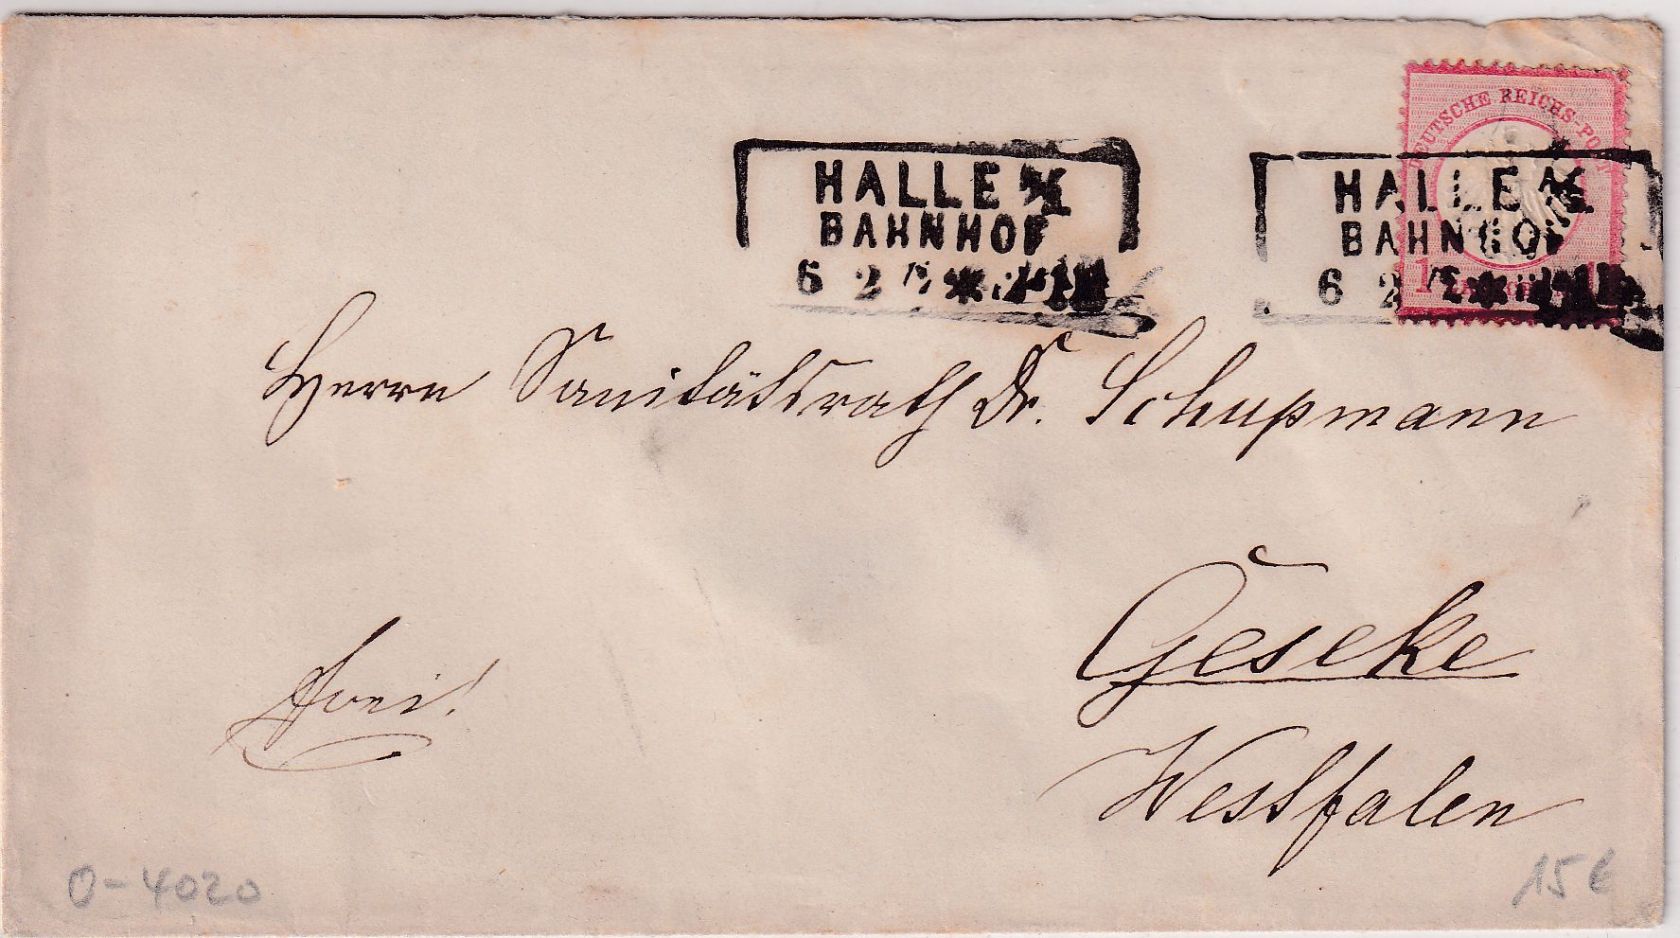 DEUTSCHE REICHS-POST
HALLE A/S
BAHNHOF
6 2
HALLE A/S
BAHNHOF
6 2
Herrn Sanitätsrath Dr. Schupmann
Geseke
Westfalen
frei!
O-4020
15 €